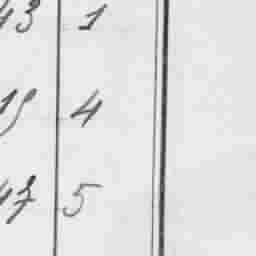 43 1
19 4
47 5